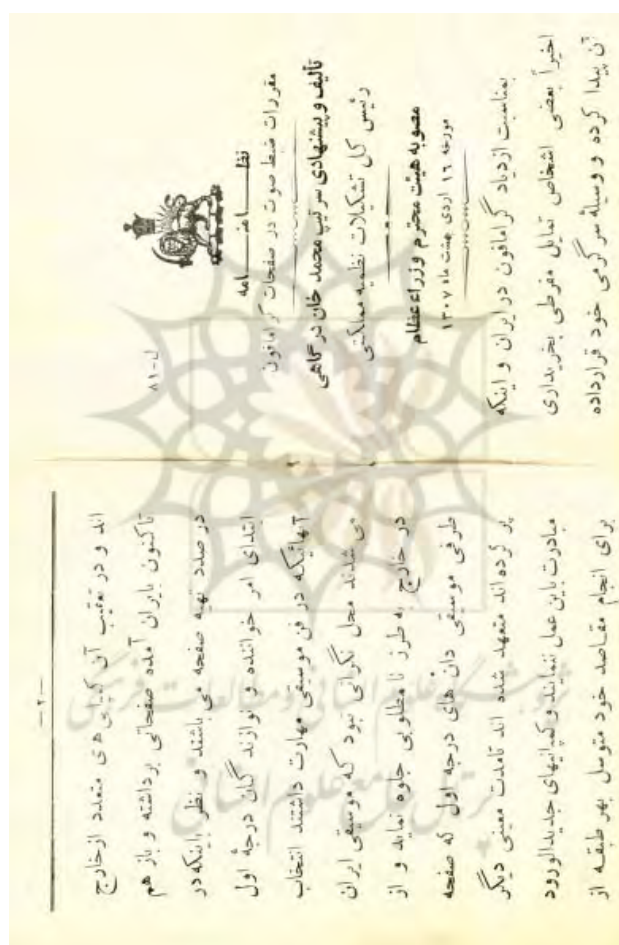 ل-۸۱
نظامنامه
مقررات ضبط صوت در صفحات گرامافون
تألیف و پیشنهادی سرتیپ محمد خان درگاهی
رئیس کل تشکیلات نظمیه مملکتی
مصوبه هیئت محترم وزراء عظام
مورخه ۱۶ اردی بهشت ماه ۱۳۰۷
بمناسبت ازدیاد گرامافون در ایران و اینکه
اخیراً بعضی اشخاص تمایل مفرطی بخریداری
آن پیدا کرده و وسیله سرگرمی خود قرارداده
-۲-
اند و در تعقیب آن کمپانی های متعدد ازخارج
تاکنون بایران آمده صفحاتی برداشته و باز هم
در صدد تهیه صفحه می باشند و نظر باینکه در
ابتدای امر خواننده و نوازند گان درجهٔ اول
آنهائیکه در فن موسیقی مهارت داشتند انتخاب
می شدند محل نگرانی نبود که موسیقی ایران
در خارج به طرز نامطلوبی جلوه نماید و از
طرفی موسیقی دان های درجه اول که صفحه
پر کرده اند متعهد شده اند تامدت معینی دیگر
مبادرت باین عمل ننمایند و کمپانیهای جدیدالورود
برای انجام مقاصد خود متوسل بهر طبقه از
پژوهشگاه علوم انسانی و مطالعات فرهنگی
پرتال جامع علوم انسانی